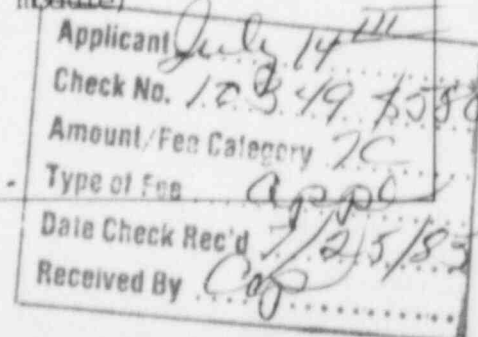 Applicant July 14
Check No. 10349 $580
Amount/Fee Category 7C
Type of Fee appl
Date Check Rec'd 7/25/85
Received By